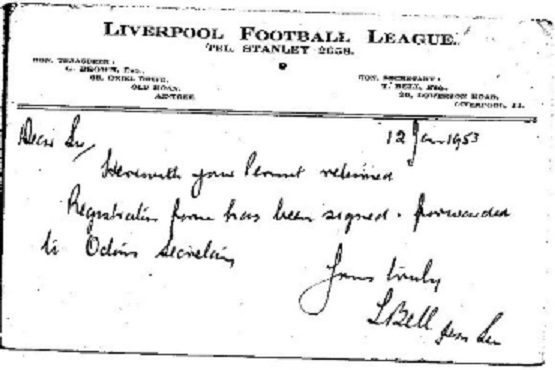 LIVERPOOL FOOTBALL LEAGUE.
TEL. STANLEY 2658.
HON. TREASURER:
G. BROWN, ESQ.,
OLD ROAN,
AINTREE.
HON. SECRETARY:
T. BELL, ESQ.,
ROAD,
LIVERPOOL,
12 Jan 1953
Dear Sir,
Herewith your Permit returned
Registration form has been signed & forwarded
to Odins Secretary
Yours truly
Bell